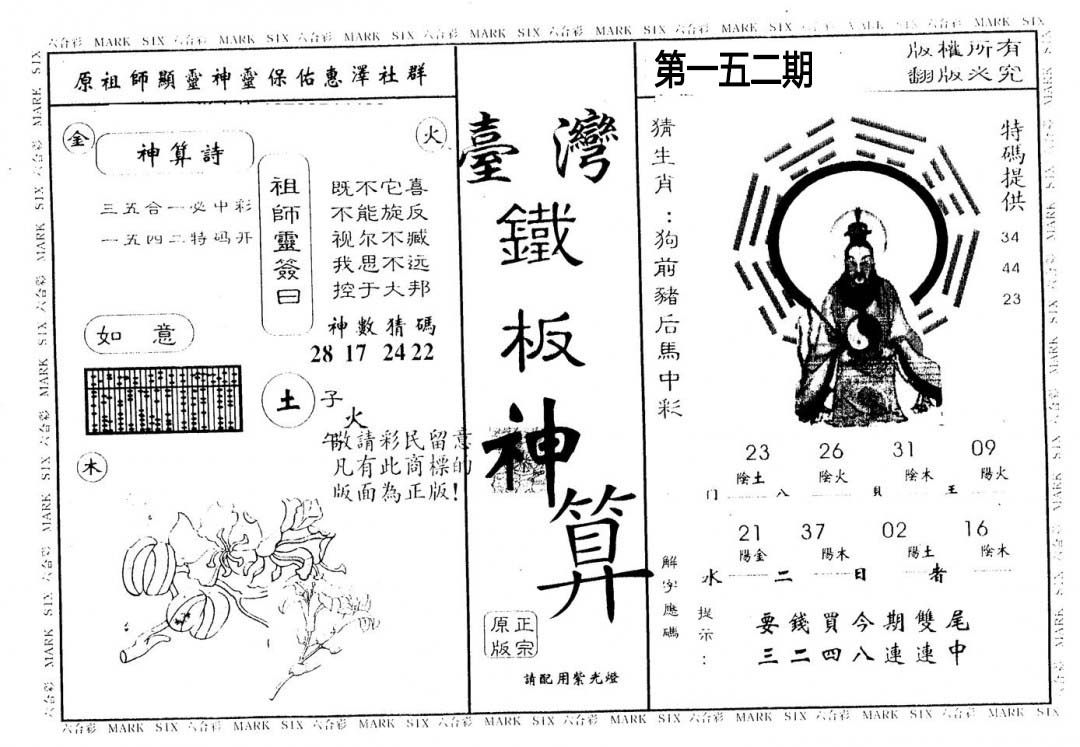 六合彩 MARK SIX 六合彩 MARK SIX 六合彩 MARK SIX 六合彩 MARK SIX 六合彩 MARK SIX 六合彩 MARK SIX
原祖師顯靈神靈保佑惠澤社群
金
火
神算詩
三五合一必中彩
一五四二特码开
祖師靈簽曰
既不它喜
不能旋反
视尔不臧
我思不远
控于大邦
神數猜碼
28 17 24 22
如意
土
子
火
午
敬請彩民留意
凡有此商標的
版面為正版!
木
臺灣
鐵
板
神
算
原正
版宗
請配用紫光燈
第一五二期
版權所有
翻版必究
猜生肖:狗前豬后馬中彩
特碼提供
34
44
23
23 26 31 09
陰土 陰火 陰木 陽火
门 八 貝 王
21 37 02 16
陽金 陽木 陽土 陰木
水 二 日 者
解字應碼
提示:
要錢買今期雙尾
三二四八連連中
六合彩 MARK SIX 六合彩 MARK SIX 六合彩 MARK SIX 六合彩 MARK SIX 六合彩 MARK SIX 六合彩 MARK SIX